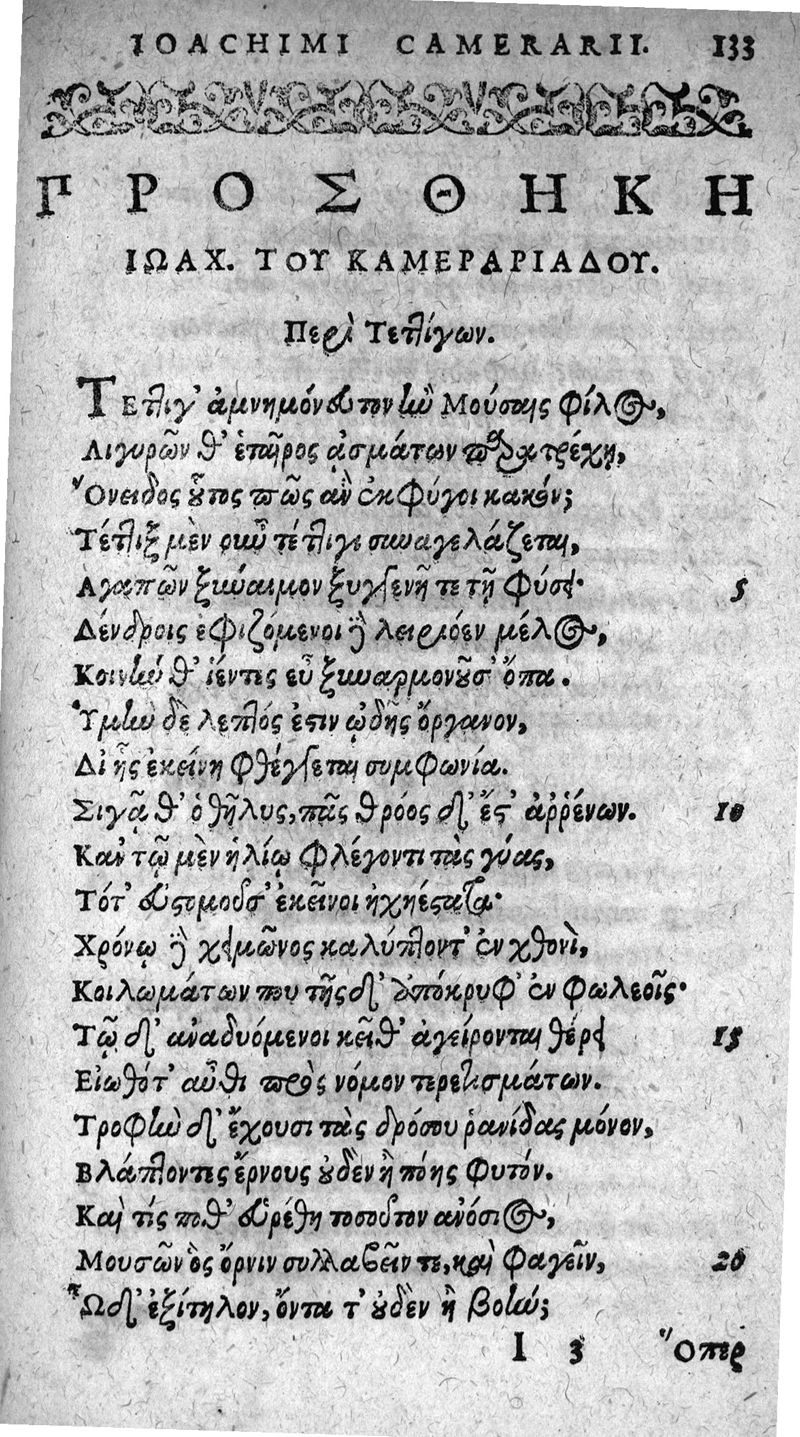 IOACHIMI CAMERARII. 133
ΠΡΟΣΘΗΚΗ
ΙΩΑΧ. ΤΟΥ ΚΑΜΕΡΑΡΙΑΔΟΥ.
Περὶ Τεττίγων.
ΤΕττιγ' ἀμνημόνευτον ἢν Μούσαις φίλος,
Λιγυρῶν θ' ἑταῖρος ᾀσμάτων παρατρέχῃ,
Ὄνειδος οὗτος πῶς ἂν ἐκφύγοι κακόν;
Τέττιξ μὲν οὖν τέττιγι συναγελάζεται,
Αγαπῶν ξύναιμον ξυγγενῆ τε τῇ φύσει· 5
Δένδροις ἐφιζόμενοι δὲ λειριόεν μέλος,
Κοινὴν θ' ἱέντες εὖ ξυναρμονοῦσ' ὄπα.
Ὑμὴν δὲ λεπτός ἐστιν ᾠδῆς ὄργανον,
Δι' ἧς ἐκείνη φθέγγεται συμφωνία.
Σιγᾷ θ' ὁ θῆλυς, πᾶς θρόος δ' ἔστ' ἀῤῥένων. 10
Κᾀν τῷ μὲν ἡλίῳ φλέγοντι τὰς γύας,
Τότ' εὐστομοῦσ' ἐκεῖνοι ἠχηέστατα·
Χρόνῳ δὲ χειμῶνος καλύπτοντ' ἐν χθονὶ,
Κοιλωμάτων που τῆσδ' ἀπόκρυφ' ἐν φωλεοῖς·
Τῷ δ' ἀναδυόμενοι κεῖθ' ἀγείρονται θέρει 15
Εἰωθότ' αὖθι πρὸς νόμον τερετισμάτων.
Τροφὴν δ' ἔχουσι τὰς δρόσου ῥανίδας μόνον,
Βλάπτοντες ἔρνους οὐδὲν ἢ πόης φυτόν.
Καὶ τίς ποθ' εὑρέθη τοσοῦτον ἀνόσιος,
Μουσῶν ὃς ὄρνιν συλλαβεῖν τε, καὶ φαγεῖν, 20
Ὧδ' ἐξίτηλον, ὄντα τ' οὐδὲν ἢ βοὴν;
I 3 Ὅπερ